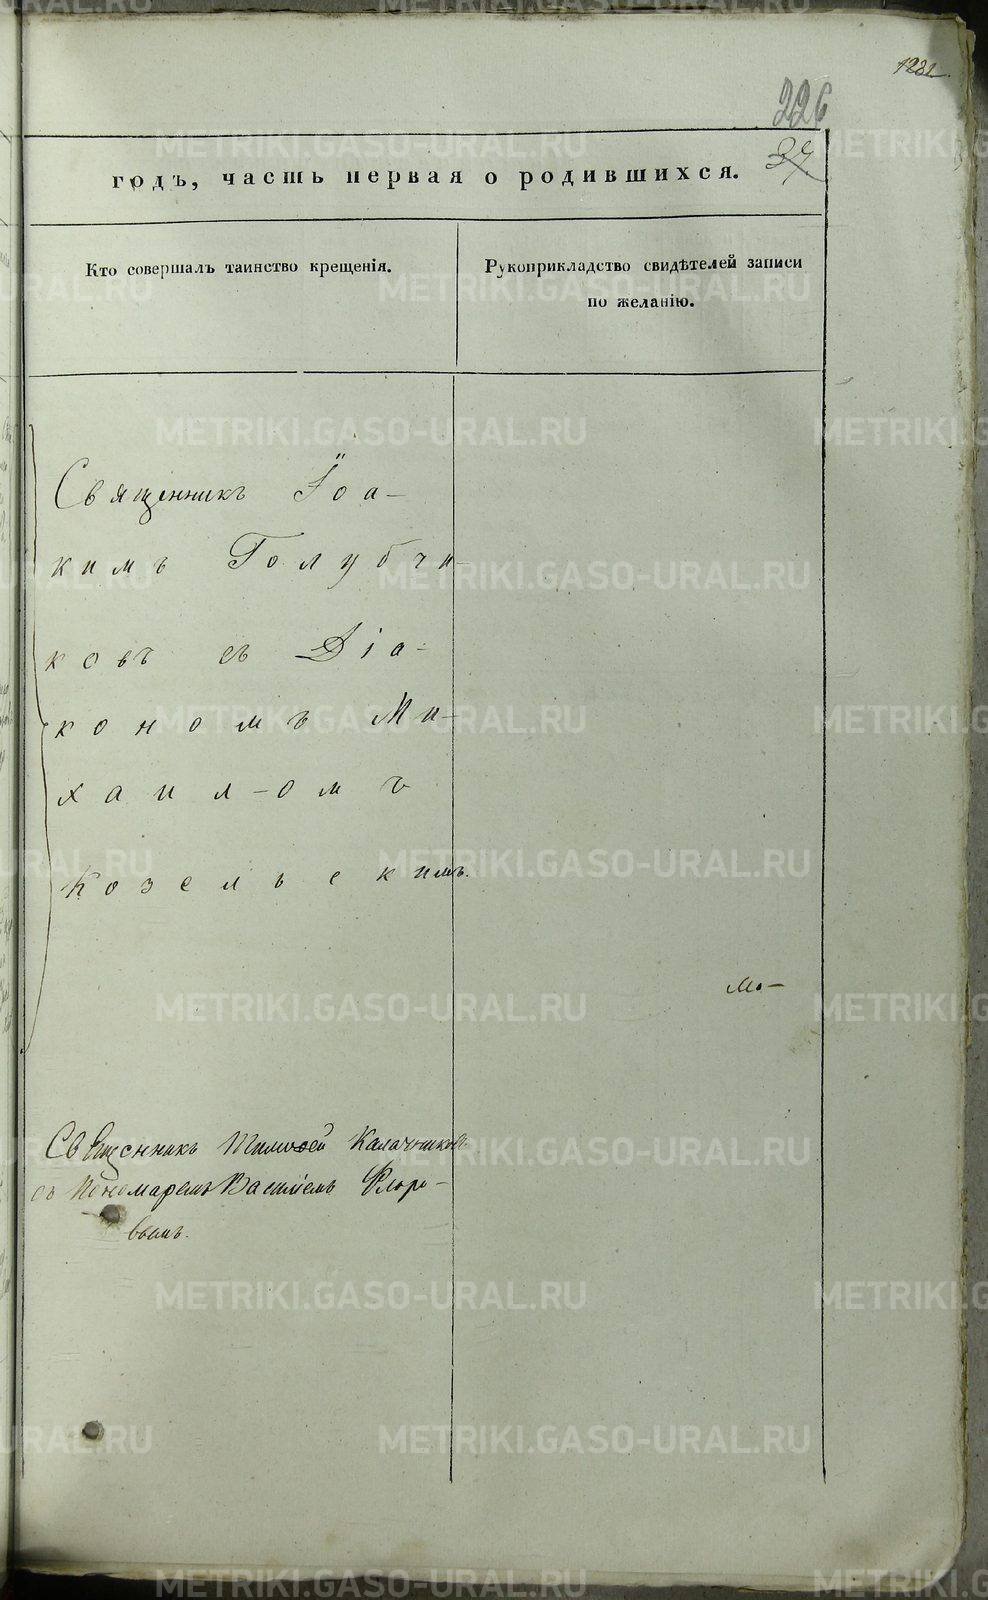 1232
226
37
годъ, часть первая о родившихся.
Кто совершалъ таинство крещенія.
Рукоприкладство свидѣтелей записи
по желанію.
Священникъ Іоа-
кимъ Голубчи-
ковъ съ Діа-
кономъ Ми-
хаиломъ
Козельскимъ.
Мо-
Священникъ Тимоѳей Калачниковъ
съ Пономаремъ Василіемъ Флоро-
вымъ.
METRIKI.GASO-URAL.RU